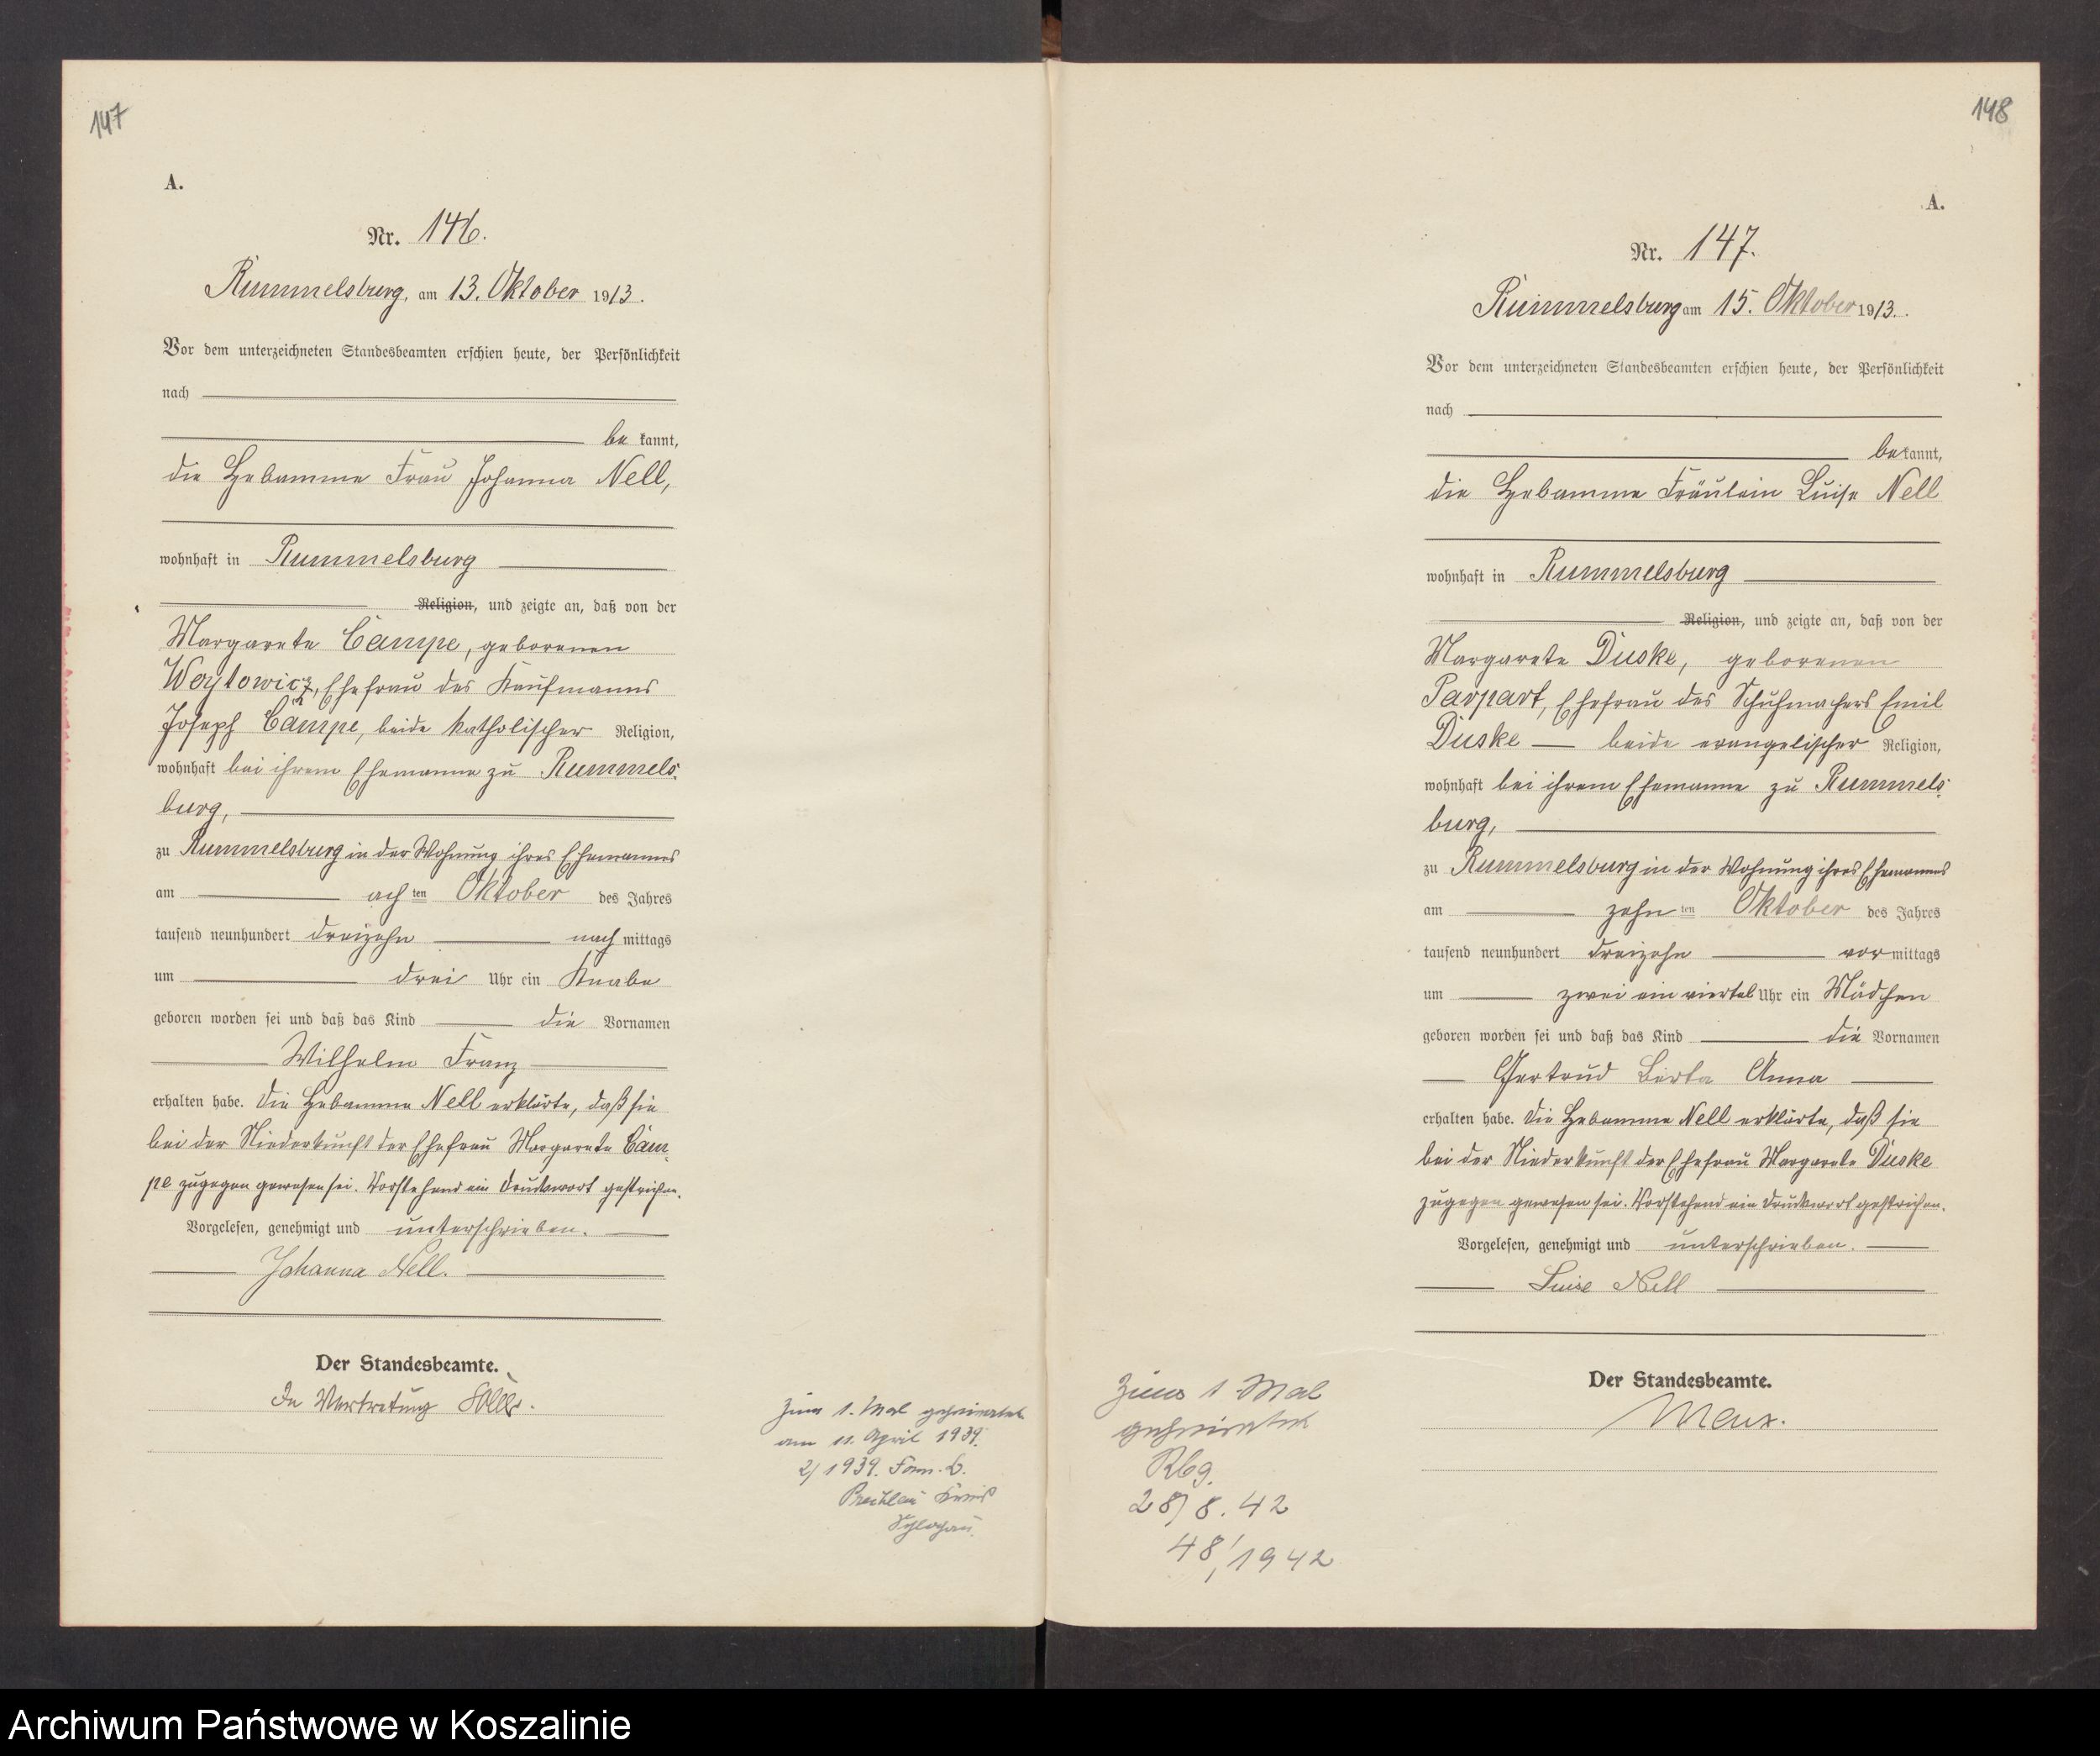 147
A.
Nr. 146.
Rummelsburg, am 13. Oktober 1913.
Vor dem unterzeichneten Standesbeamten erschien heute, der Persönlichkeit
nach
be kannt,
die Hebamme Frau Johanna Nell,
wohnhaft in Rummelsburg
Religion, und zeigte an, daß von der
Margarete Campe, geborenen
Woytowicz, Ehefrau des Kaufmanns
Joseph Campe, beide katholischer Religion,
wohnhaft bei ihrem Ehemanne zu Rummels-
burg,
zu Rummelsburg in der Wohnung ihres Ehemannes
am achten Oktober des Jahres
tausend neunhundert dreizehn nachmittags
um drei Uhr ein Knabe
geboren worden sei und daß das Kind die Vornamen
Wilhelm Franz
erhalten habe. Die Hebamme Nell erklärte, daß sie
bei der Niederkunft der Ehefrau Margarete Cam-
pe zugegen gewesen sei. Vorstehend ein Druckwort gestrichen.
Vorgelesen, genehmigt und unterschrieben.
Johanna Nell.
Der Standesbeamte.
In Vertretung
zum 1. Mal geheiratet
am 11. April 1939.
2/1939. Fam. b.
Prechlau Kreis
Schlochau.
148
A.
Nr. 147.
Rummelsburg am 15. Oktober 1913.
Vor dem unterzeichneten Standesbeamten erschien heute, der Persönlichkeit
nach
bekannt,
die Hebamme Fräulein Luise Nell
wohnhaft in Rummelsburg
Religion, und zeigte an, daß von der
Margarete Duske, geborenen
Parpart, Ehefrau des Schuhmachers Emil
Duske — beide evangelischer Religion,
wohnhaft bei ihrem Ehemanne zu Rummels-
burg,
zu Rummelsburg in der Wohnung ihres Ehemannes
am zehnten Oktober des Jahres
tausend neunhundert dreizehn vormittags
um zwei ein viertel Uhr ein Mädchen
geboren worden sei und daß das Kind die Vornamen
Gertrud Berta Anna
erhalten habe. Die Hebamme Nell erklärte, daß sie
bei der Niederkunft der Ehefrau Margarete Duske
zugegen gewesen sei. Vorstehend ein Druckwort gestrichen.
Vorgelesen, genehmigt und unterschrieben.
Luise Nell
Der Standesbeamte.
zum 1 Mal
geheiratet
Rbg.
28/8.42
48/1942
Archiwum Państwowe w Koszalinie